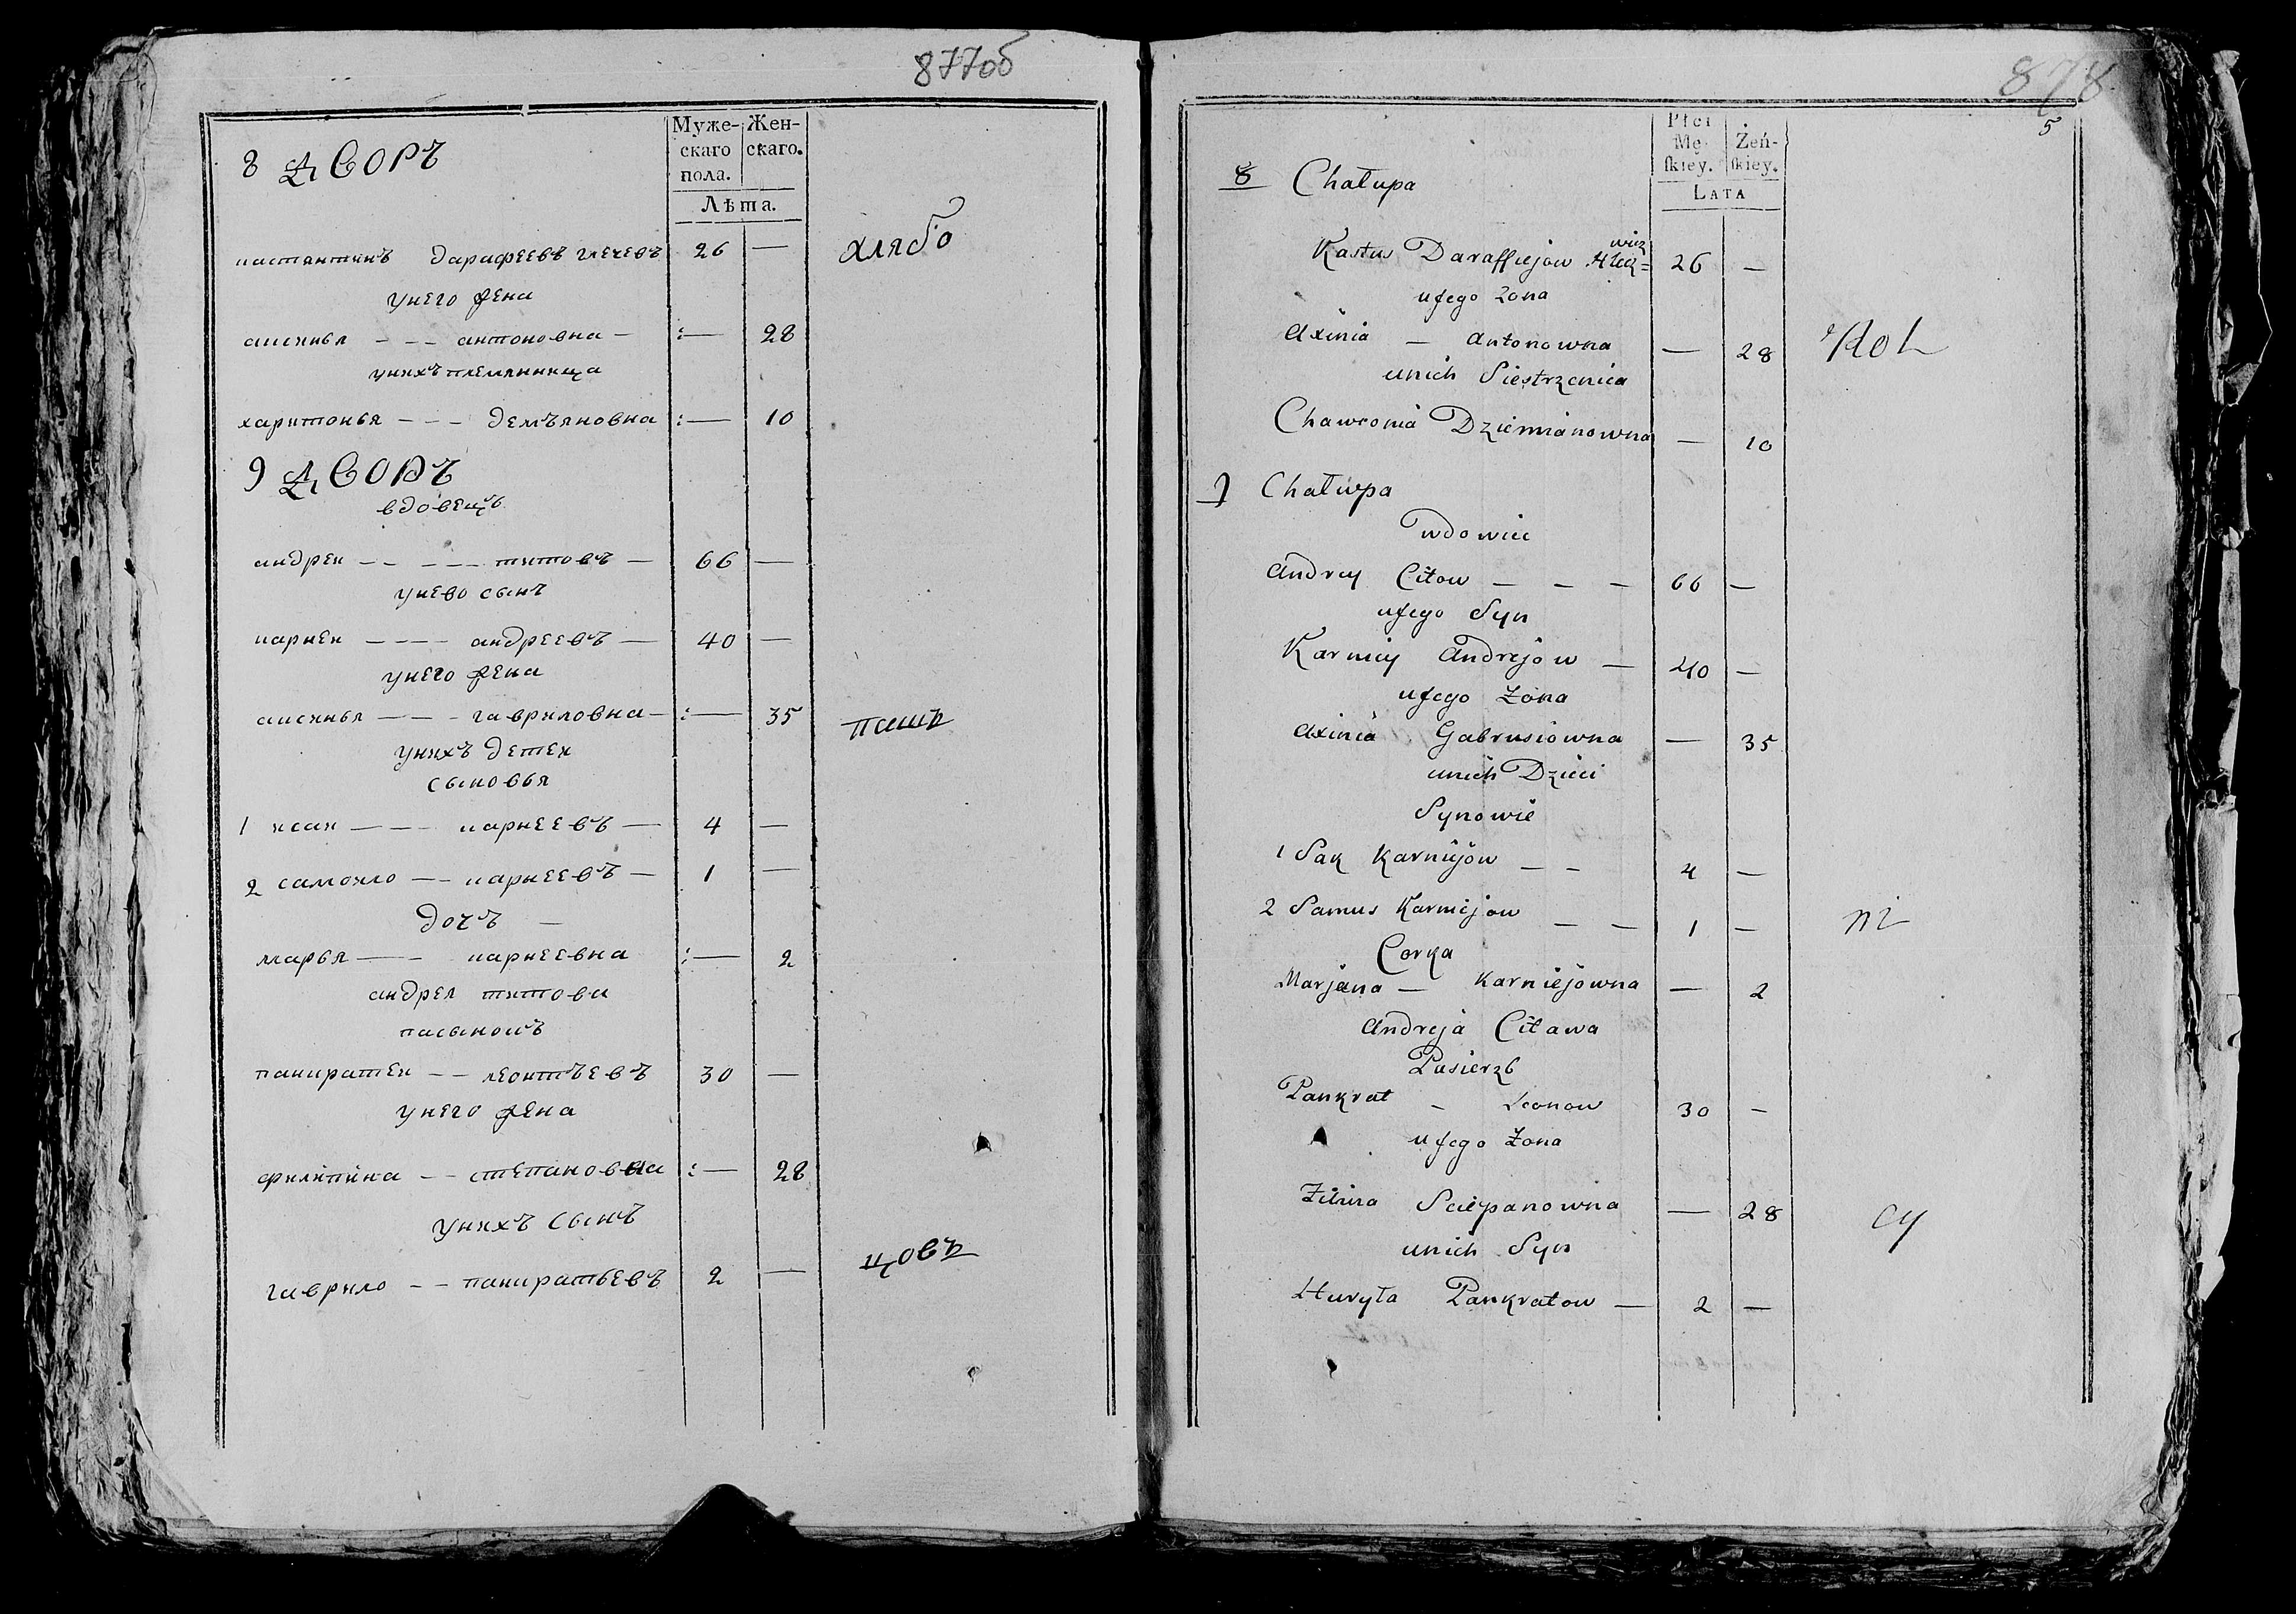 877об
Муже- Жен-
скаго скаго.
пола.
Лѣта.
8 ДВОРЪ
кастантинъ дарафеевъ глечевъ 26 —
унего жена
аксинья - - - антоновна — :— 28
унихъ племянница
харитонья - - - демъяновна :— 10
9 ДВОРЪ
вдовецъ
андреи — — — — титовъ — 66 —
унево сынъ
карнеи — — — андреевъ — 40 —
унего жена
аксинья — — - гавриловна — :— 35
унихъ детеи
сыновья
1 исаи — — - карнеевъ — 4 —
2 самоило — — карнеевъ — 1 —
дочъ —
марья — — карнеевна :— 2
андрея титова
пасынокъ
панкратеи — — леонтъевъ 30 —
унего жена
филипина — — степановна :— 28
унихъ сынъ
гаврило — — панкратьевъ 2 —
хлябо
пашъ
цовъ
878
5
Płci
Mę- Żeń-
skiey. skiey.
LATA
8 Chałupa
Kastus Daraffiejow Hlecz=
wicz 26 —
ujego Zona
Axinia — Antonowna — 28
unich Siestrzenica
Chawronia Dziemianowna — 10
9 Chałupa
Wdowiec
Andrey Citow — — — 66 —
ujego Syn
Karniey Andrejow — 40 —
ujego Żona
Axinia Gabrusiowna — 35
unich Dzieci
Synowie
1 Sak Karniejow — — 4 —
2 Samus Karniejow — — 1 —
Corka
Marjana — Karniejowna — 2
Andreja Citawa
Pasierzb
Pankrat — Leonow 30 —
ujego Żona
Sciepanowna — 28
unich Syn
Huryła Pankratow — 2 —
ni
cy